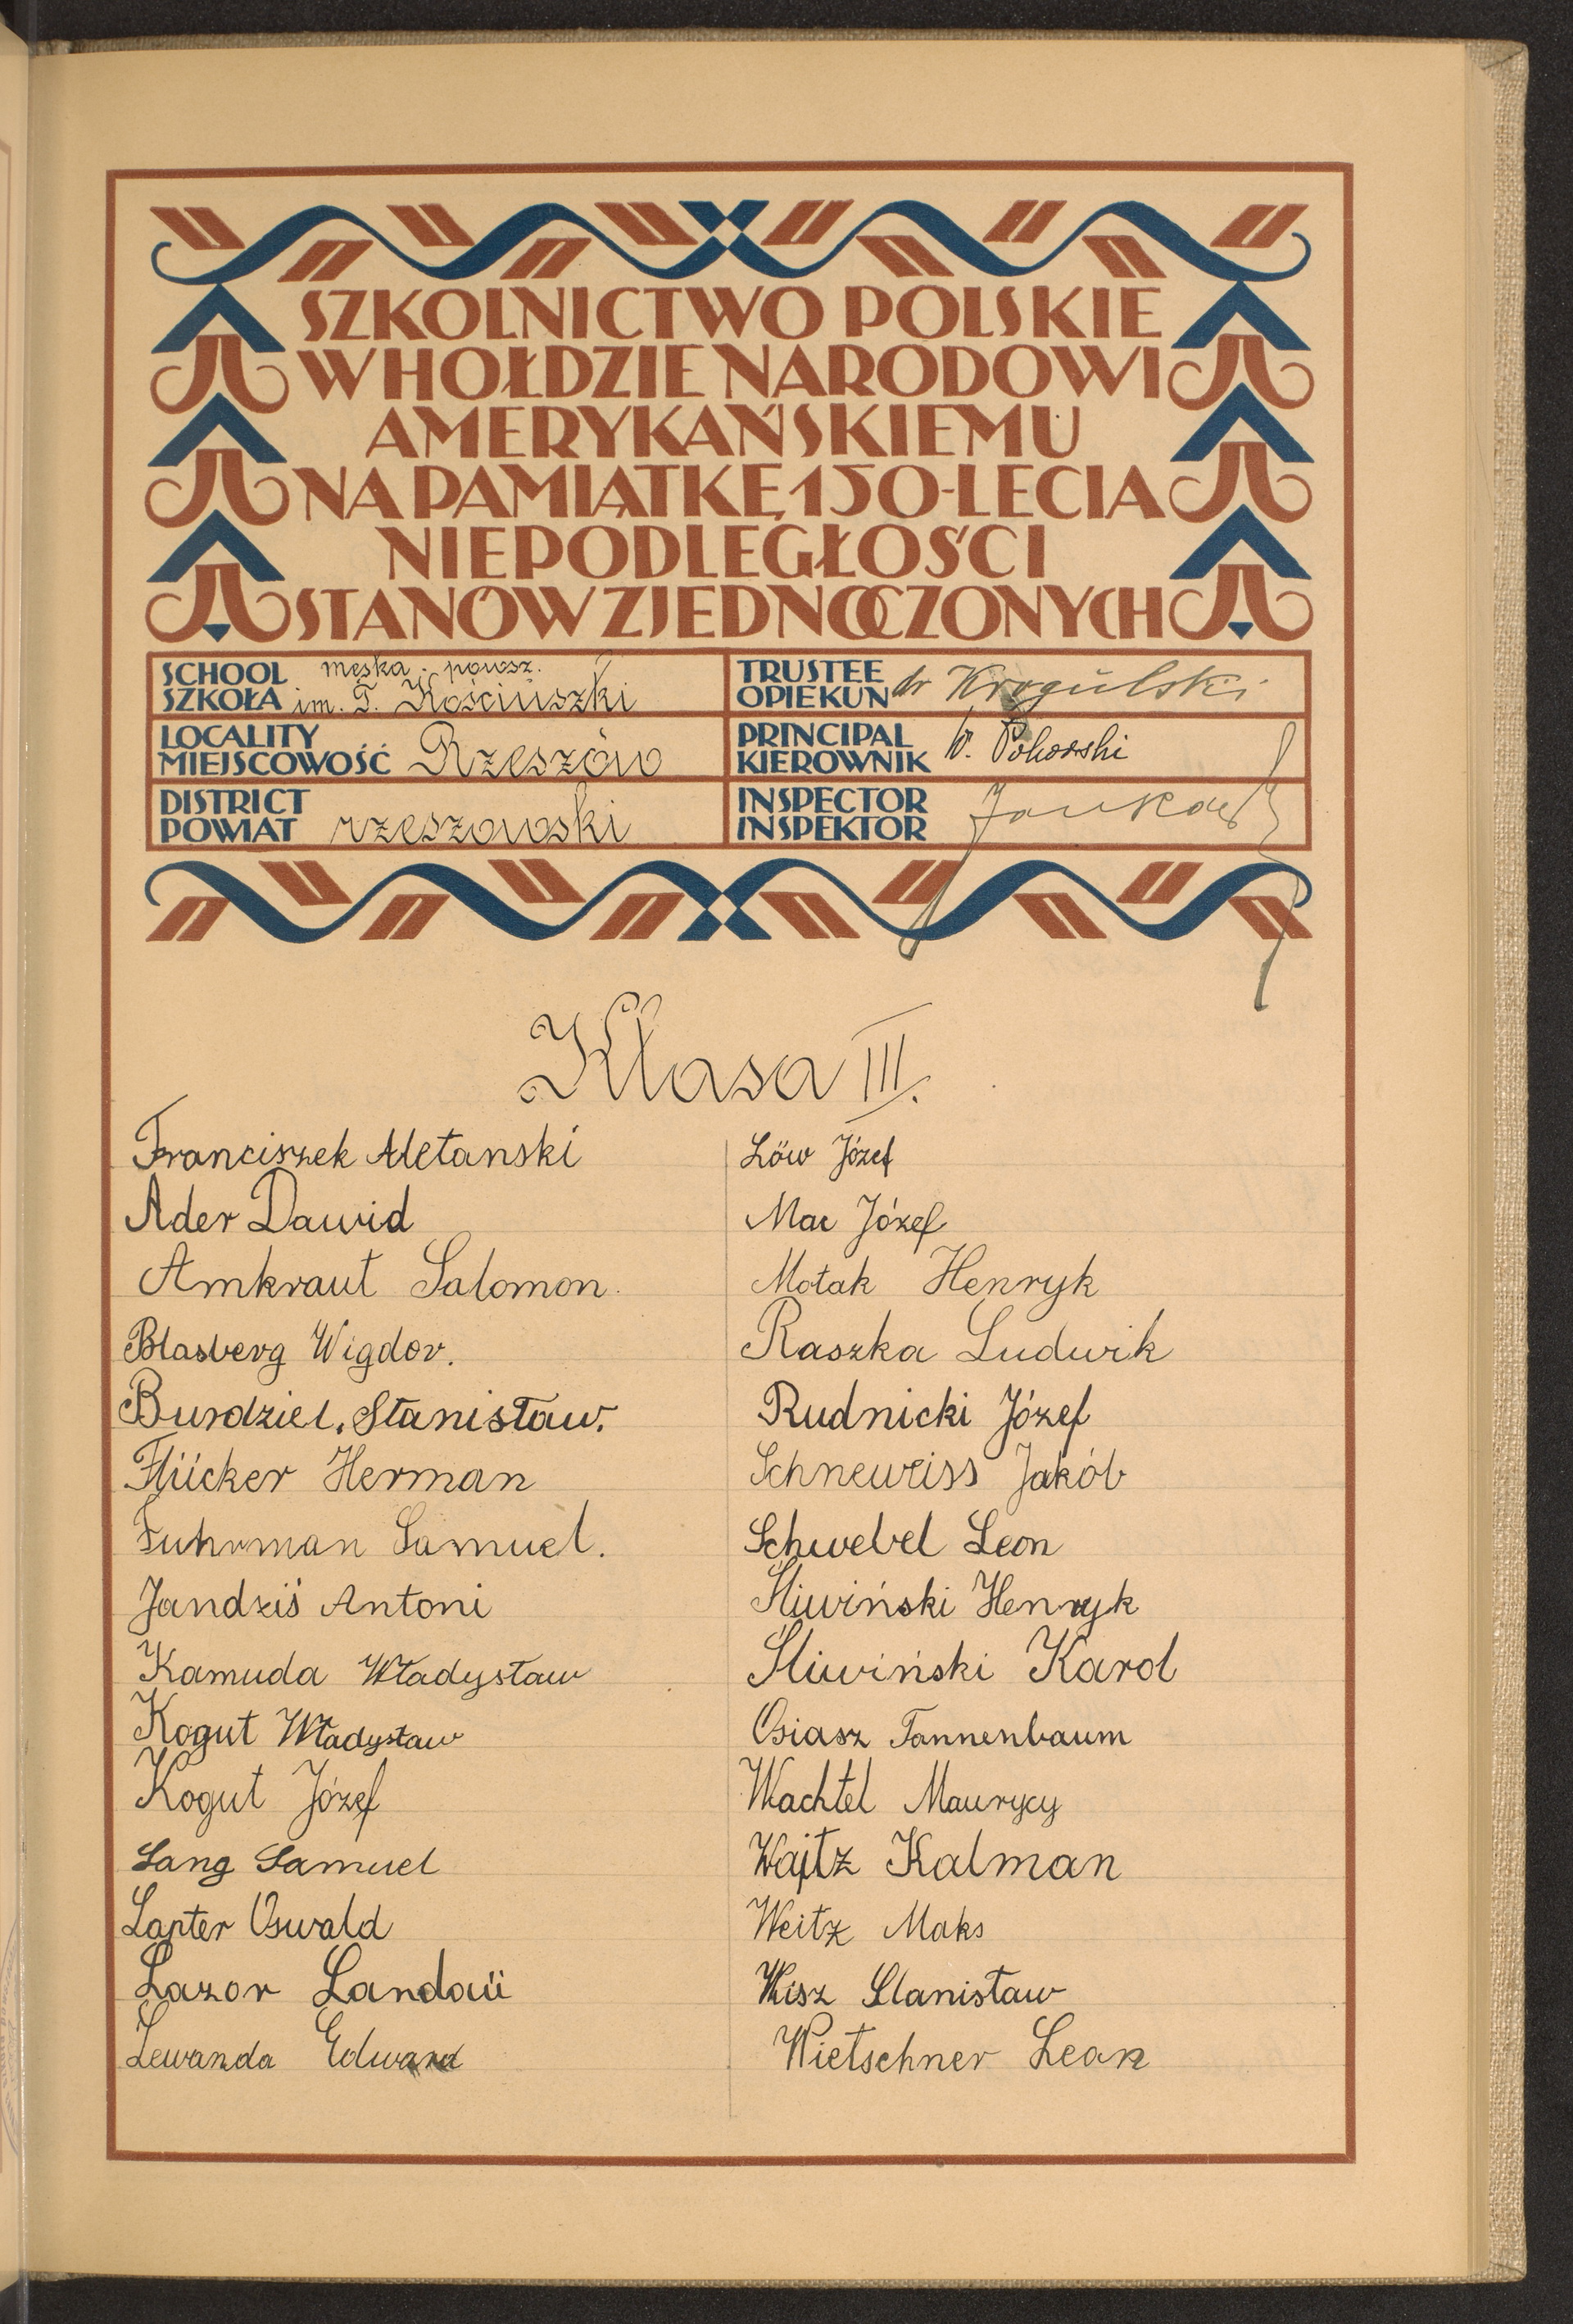 SZKOLNICTWO POLSKIE
W HOŁDZIE NARODOWI
AMERYKAŃSKIEMU
NA PAMIĄTKĘ 150-LECIA
NIEPODLEGŁOŚCI
STANÓW ZJEDNOCZONYCH
SCHOOL
SZKOŁA
męska powsz.
im. T. Kościuszki
TRUSTEE
OPIEKUN
dr Krogulski
LOCALITY
MIEJSCOWOŚĆ
Rzeszów
PRINCIPAL
KIEROWNIK
W.
DISTRICT
POWIAT
rzeszowski
INSPECTOR
INSPEKTOR
Klasa III.
Franciszek
Ader Dawid
Amkraut Salomon.
Blasberg Wigdor.
Burdziel. Stanisław.
Flücker Herman
Fuhrman Samuel.
Jandziś Antoni
Kamuda Władysław
Kogut Władysław
Kogut Józef
Lang Samuel
Lanter Oswald
Lazor Landaü
Lewanda Edward
Löw Józef
Mac Józef
Motak Henryk
Raszka Ludwik
Rudnicki Józef
Schneweiss Jakób
Schwebel Leon
Śliwiński Henryk
Śliwiński Karol
Osiasz Tannenbaum
Wachtel Maurycy
Wajtz Kalman
Weitz Maks
Wisz Stanisław
Wietschner Leon